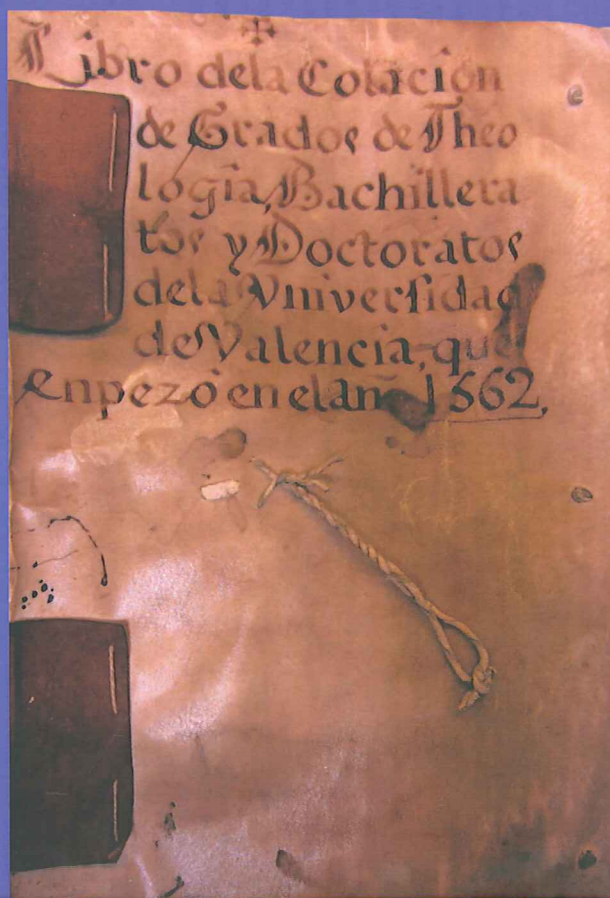 Libro dela Colacion
de Grados de Theo
logia, Bachillera
tos y Doctoratos
dela Vniversidad
de Valencia, que
enpezò en el año 1562,